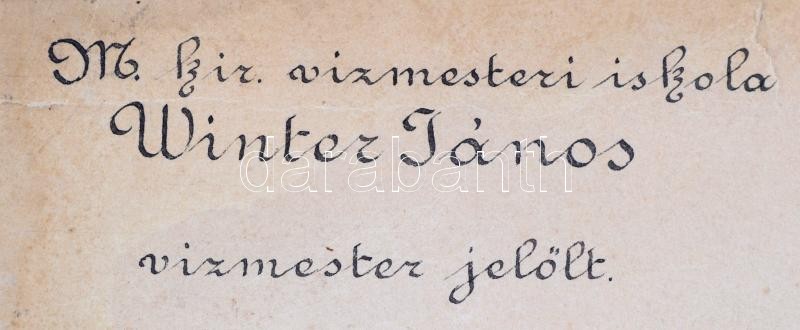 M. kir. vizmesteri iskola
Winter János
darabanth
vizmester jelölt.